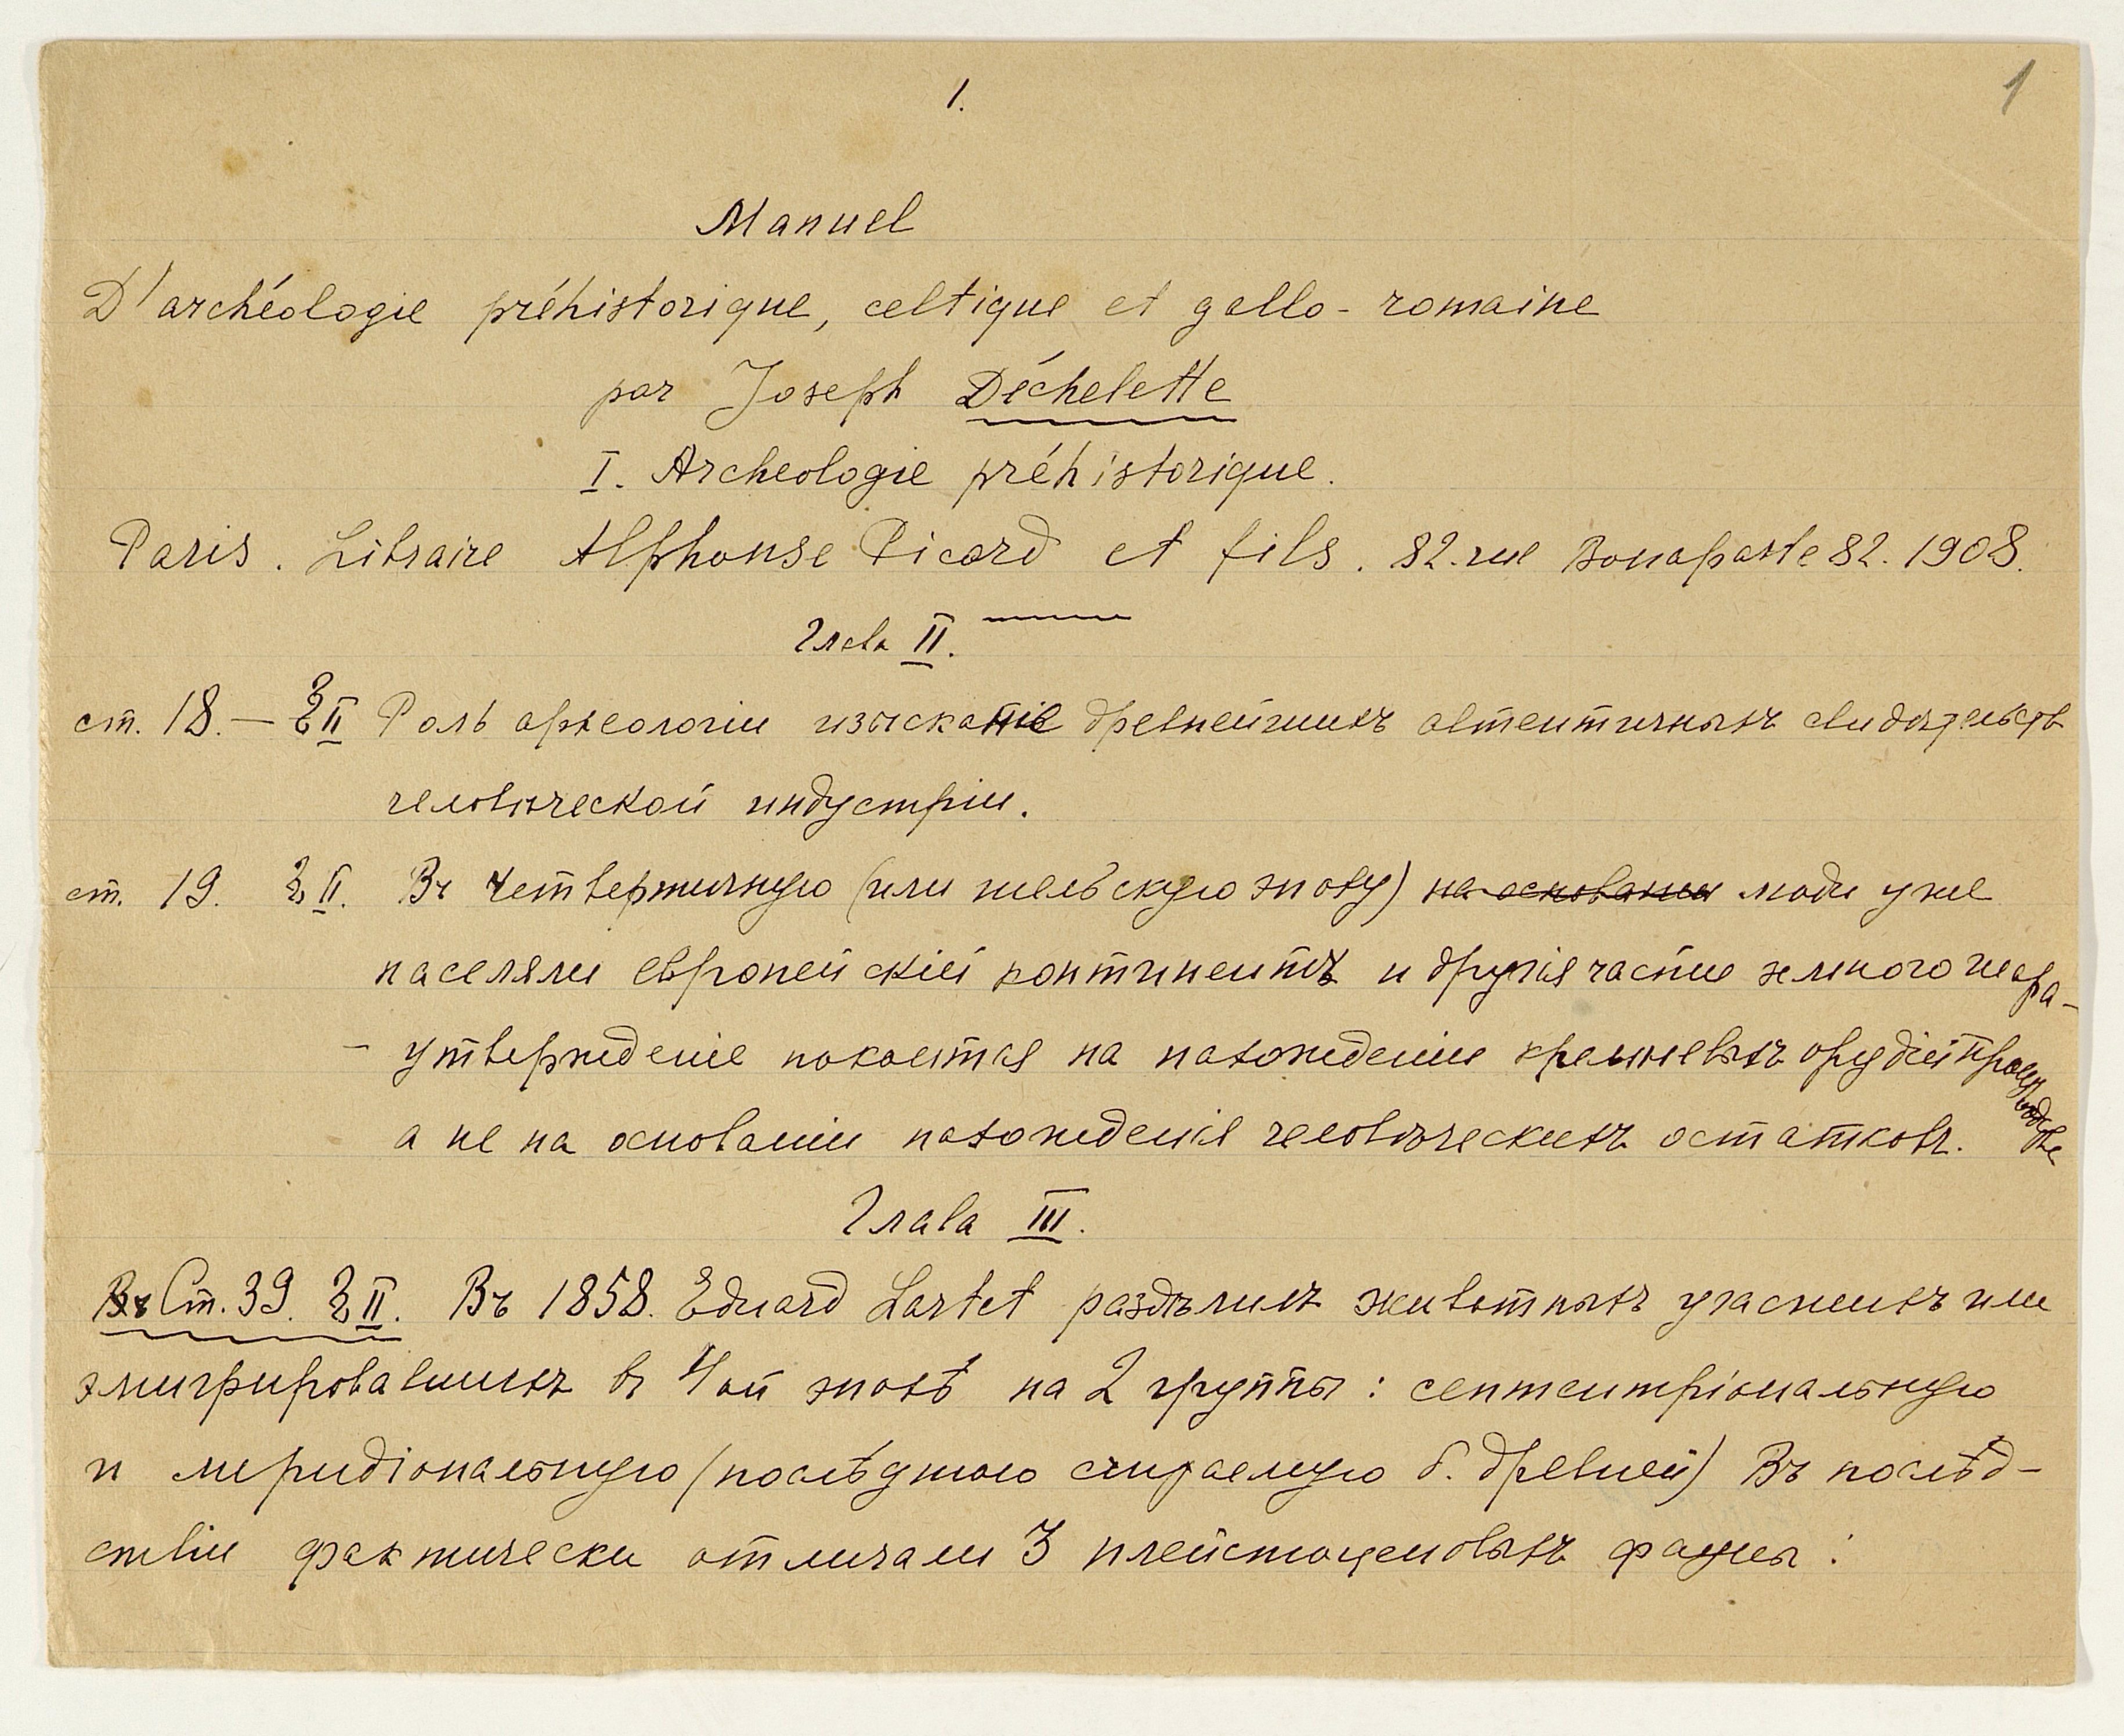 1.
1
Manuel
D'archéologie préhistorique, celtique et gallo-romaine
par Joseph Déchelette
I. Archeologie préhistorique.
Paris. Libraire Alphonse Picard et fils. 82. rue Bonaparte 82. 1908.
Глава II.
ст. 18. — II Роль археологіи изысканіе древнейшихъ автентичныхъ свидѣтельств
человѣческой индустріи.
ст. 19. II. Въ четвертичную (или шельскую эпоху) на основании люди уже
населяли европейскій континентъ и другія части земного шара –
– утвержденіе покоится на нахожденіи кремневыхъ орудій
а не на основаніи нахожденія человѣческихъ остатковъ.
Глава III.
Въ Ст. 39. II. Въ 1858. Eduard Lartet раздѣлилъ животныхъ угасшихъ или
эмигрировавшихъ въ 4ой эпохѣ на 2 группы: септентріональную
и меридіональную (послѣднюю считаемую б. древней) Въ послѣд-
ствіи фактически отличали 3 плейстоценовыхъ фауны: